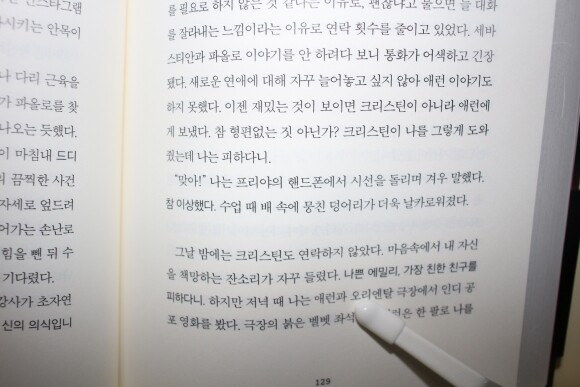 인스타그램
시키는 안목이
나 다리 근육을
가 파올로를 찾
나오는 듯했다.
이 마침내 드디
의 끔찍한 사건
자세로 엎드려
어가는 손난로
힘을 뺀 뒤 수
기다렸다.
강사가 초자연
신의 의식입니
를 필요로 하지 않는 것 같다는 이유로, 괜찮냐고 물으면 늘 대화
를 잘라내는 느낌이라는 이유로 연락 횟수를 줄이고 있었다. 세바
스티안과 파올로 이야기를 안 하려다 보니 통화가 어색하고 긴장
됐다. 새로운 연애에 대해 자꾸 늘어놓고 싶지 않아 애런 이야기도
하지 못했다. 이젠 재밌는 것이 보이면 크리스틴이 아니라 애런에
게 보냈다. 참 형편없는 짓 아닌가? 크리스틴이 나를 그렇게 도와
줬는데 나는 피하다니.
“맞아!” 나는 프리야의 핸드폰에서 시선을 돌리며 겨우 말했다.
참 이상했다. 수업 때 배 속에 뭉친 덩어리가 더욱 날카로워졌다.
그날 밤에는 크리스틴도 연락하지 않았다. 마음속에서 내 자신
을 책망하는 잔소리가 자꾸 들렸다. 나쁜 에밀리, 가장 친한 친구를
피하다니. 하지만 저녁 때 나는 애런과 오리엔탈 극장에서 인디 공
포 영화를 봤다. 극장의 붉은 벨벳 좌석 은 한 팔로 나를
129